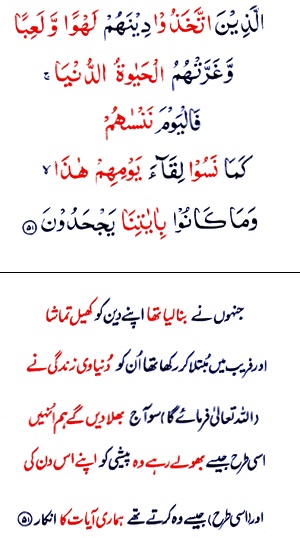 الَّذِيْنَ اتَّخَذُوْا دِيْنَهُمْ لَهْوًا وَّلَعِبًا
وَّغَرَّتْهُمُ الْحَيٰوةُ الدُّنْيَا ۚ
فَالْيَوْمَ نَنْسٰىهُمْ
كَمَا نَسُوْا لِقَآءَ يَوْمِهِمْ هٰذَا ۙ
وَمَا كَانُوْا بِاٰيٰتِنَا يَجْحَدُوْنَ ﴿۵۱﴾
جنہوں نے بنالیا تھا اپنے دین کو کھیل تماشا
اور فریب میں مُبتلا کر رکھا تھا اُن کو دُنیاوی زندگی نے
(اللہ تعالیٰ فرمائے گا) سو آج بھلا دیں گے ہم انہیں
اسی طرح جیسے بھولے رہے وہ پیشی کو اپنے اس دن کی
اور (اسی طرح) جیسے وہ کرتے تھے ہماری آیات کا انکار ﴿۵۱﴾